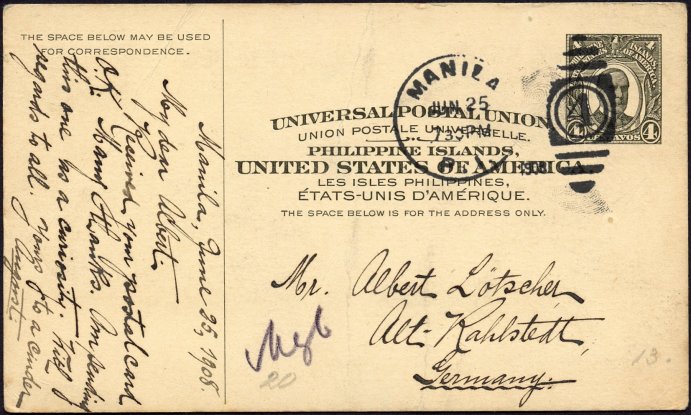 THE SPACE BELOW MAY BE USED
FOR CORRESPONDENCE.
Manila, June 25, 1908.
My dear Albert:
Received your postal card
O.K. Many thanks. Am sending
this one as a curiosity. Kind
regards to all. Yours to a cinder
August
MANILA
JUN 25
7 30 PM
1908
1
4 4
4 CENTAVOS 4
UNIVERSAL POSTAL UNION
UNION POSTALE UNIVERSELLE.
PHILIPPINE ISLANDS,
UNITED STATES OF AMERICA.
LES ISLES PHILIPPINES,
ÉTATS-UNIS D'AMÉRIQUE.
THE SPACE BELOW IS FOR THE ADDRESS ONLY.
Mr. Albert Lötscher
Alt-Kahlstedt,
Germany.
20
13.